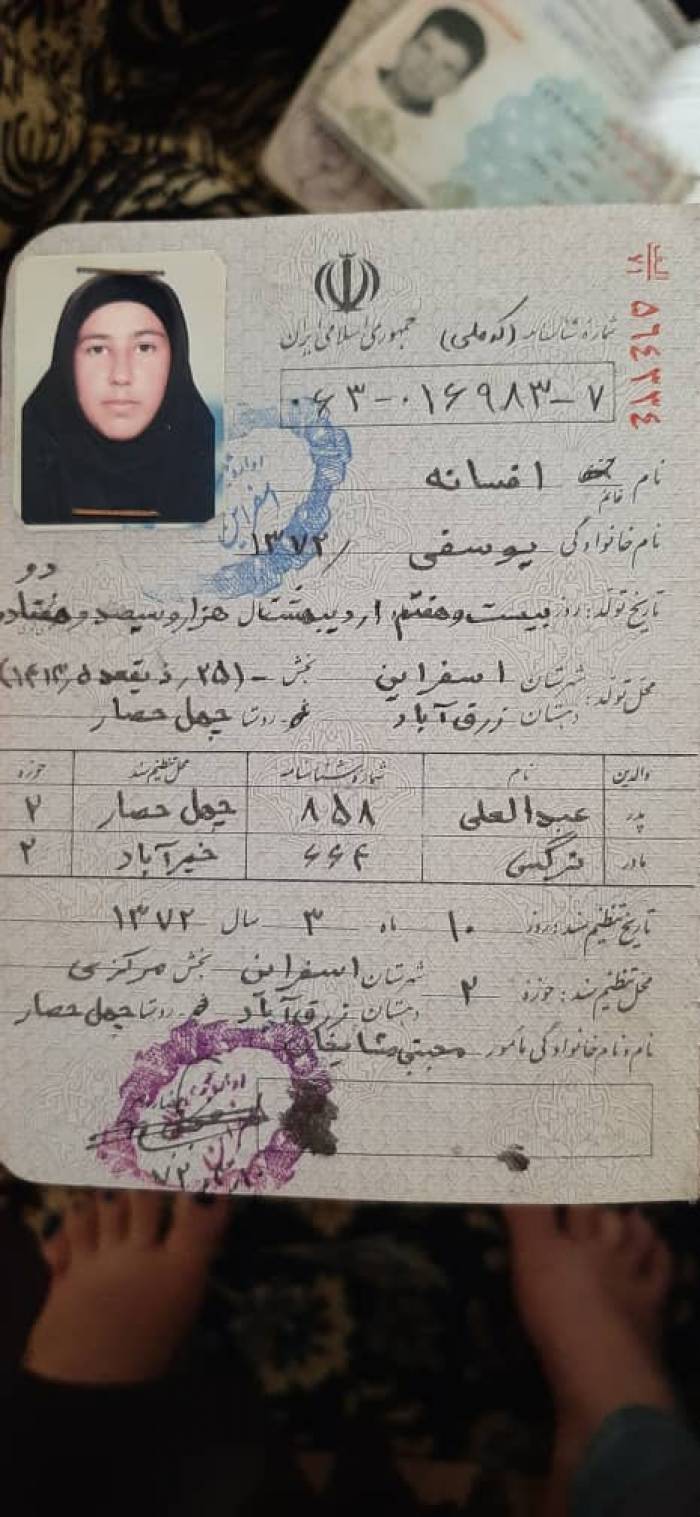 شماره شناسنامه (کد ملی)
جمهوری اسلامی ایران
الف/۷۱
۵۶۴۳۳۴
۰۶۳-۰۱۶۹۸۳-۷
نام خانم افسانه
نام خانوادگی یوسفی /۱۳۷۲
دو
تاریخ تولد: روز بیست و هفتم اردیبهشت سال هزار و سیصد و هفتاد و
محل تولد: شهرستان اسفراین بخش - (۲۵ ذیقعده
دهستان زرق آباد روستا چهل حصار
والدین نام شماره شناسنامه محل تنظیم سند حوزه
پدر عبدالعلی ۸۵۸ چهل حصار ۲
مادر نرگس ۶۶۴ خیرآباد ۲
تاریخ تنظیم سند: روز ۱۰ ماه ۳ سال ۱۳۷۲
محل تنظیم سند: حوزه ۲ شهرستان اسفراین بخش مرکزی
دهستان زرق آباد روستا چهل حصار
نام و نام خانوادگی مأمور مجتبی